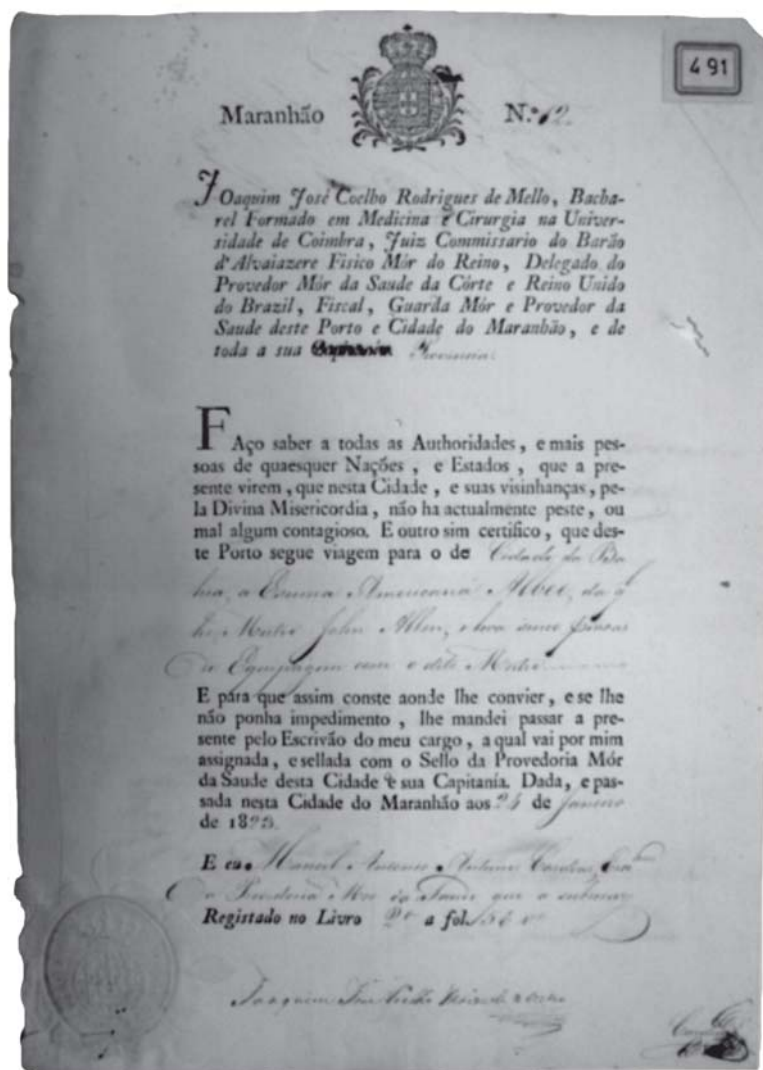 491
Maranhão N.º 62
Joaquim José Coelho Rodrigues de Mello, Bacha-
rel Formado em Medicina e Cirurgia na Univer-
sidade de Coimbra, Juiz Commissario do Barão
d'Alvaiazere Fisico Mór do Reino, Delegado do
Provedor Mór da Saude da Côrte e Reino Unido
do Brazil, Fiscal, Guarda Mór e Provedor da
Saude deste Porto e Cidade do Maranhão, e de
toda a sua Provincia
FAço saber a todas as Authoridades, e mais pes-
soas de quaesquer Nações, e Estados, que a pre-
sente virem, que nesta Cidade, e suas visinhanças, pe-
la Divina Misericordia, não ha actualmente peste, ou
mal algum contagioso. E outro sim certifico, que des-
te Porto segue viagem para o de Cidade da Ba
hia, a Escuna Americana da q
he Mestre John Allen, e leva
Equipagem com o dito Mestre
E para que assim conste aonde lhe convier, e se lhe
não ponha impedimento, lhe mandei passar a pre-
sente pelo Escrivão do meu cargo, a qual vai por mim
assignada, e sellada com o Sello da Provedoria Mór
da Saude desta Cidade e sua Capitanía. Dada, e pas-
sada nesta Cidade do Maranhão aos 24 de Janeiro
de 18
E eu Manoel Antonio
a Provedoria Mor da Saude que a
Registado no Livro 2º a fol.
Joaquim José